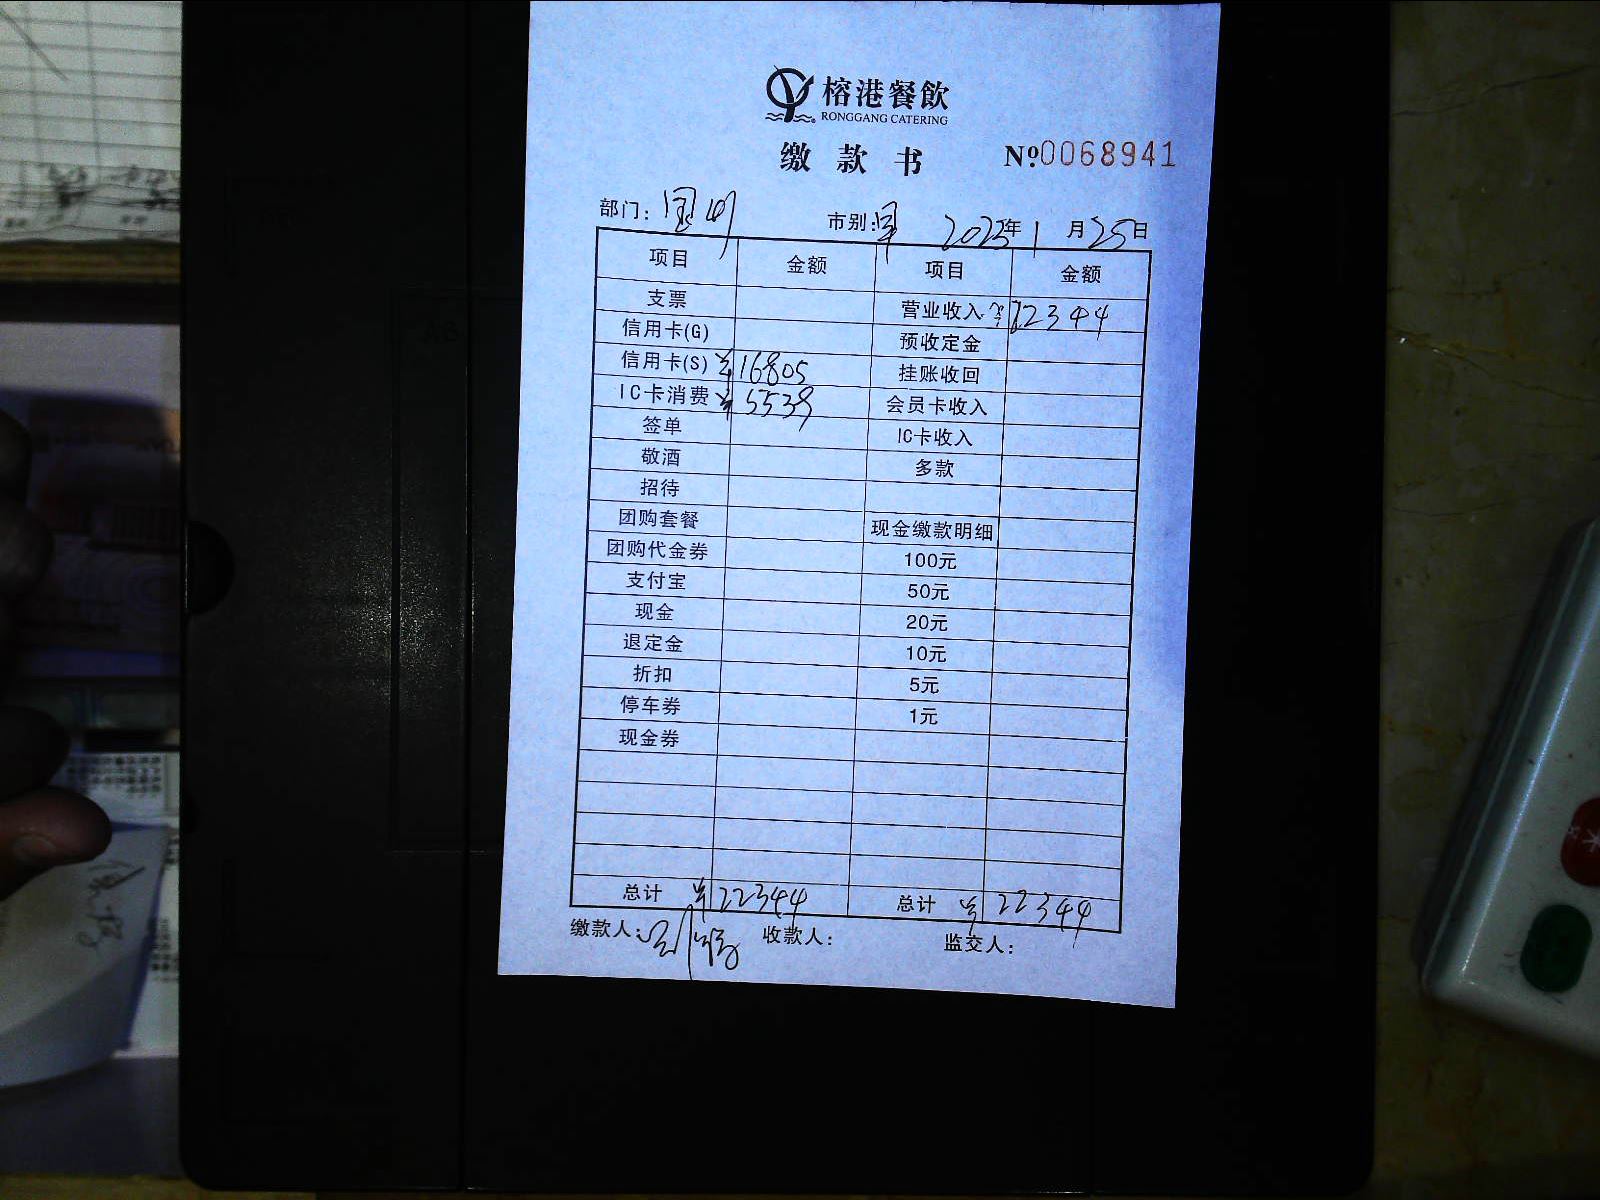 榕港餐飲
RONGGANG CATERING
缴款书 №0068941
部门: 市别: 2025年1月25日
项目 金额 项目 金额
支票 营业收入 ¥22344
信用卡(G) 预收定金
信用卡(S) ¥16805 挂账收回
IC卡消费 ¥5539 会员卡收入
签单 IC卡收入
敬酒 多款
招待
团购套餐 现金缴款明细
团购代金券 100元
支付宝 50元
现金 20元
退定金 10元
折扣 5元
停车券 1元
现金券
总计 ¥22344 总计 ¥22344
缴款人: 收款人: 监交人: